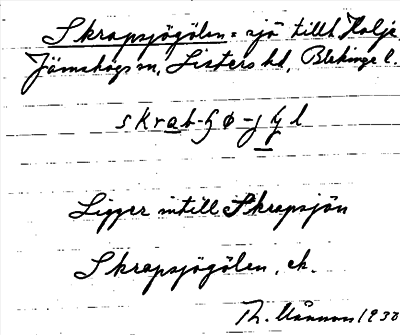 Skrapsjögölen = sjö tillh Holje
Jämshögs sn, Listers hd, Blekinge l.
Ligger intill Skrapsjön
Skrapsjögölen, ek.
Th. 1938